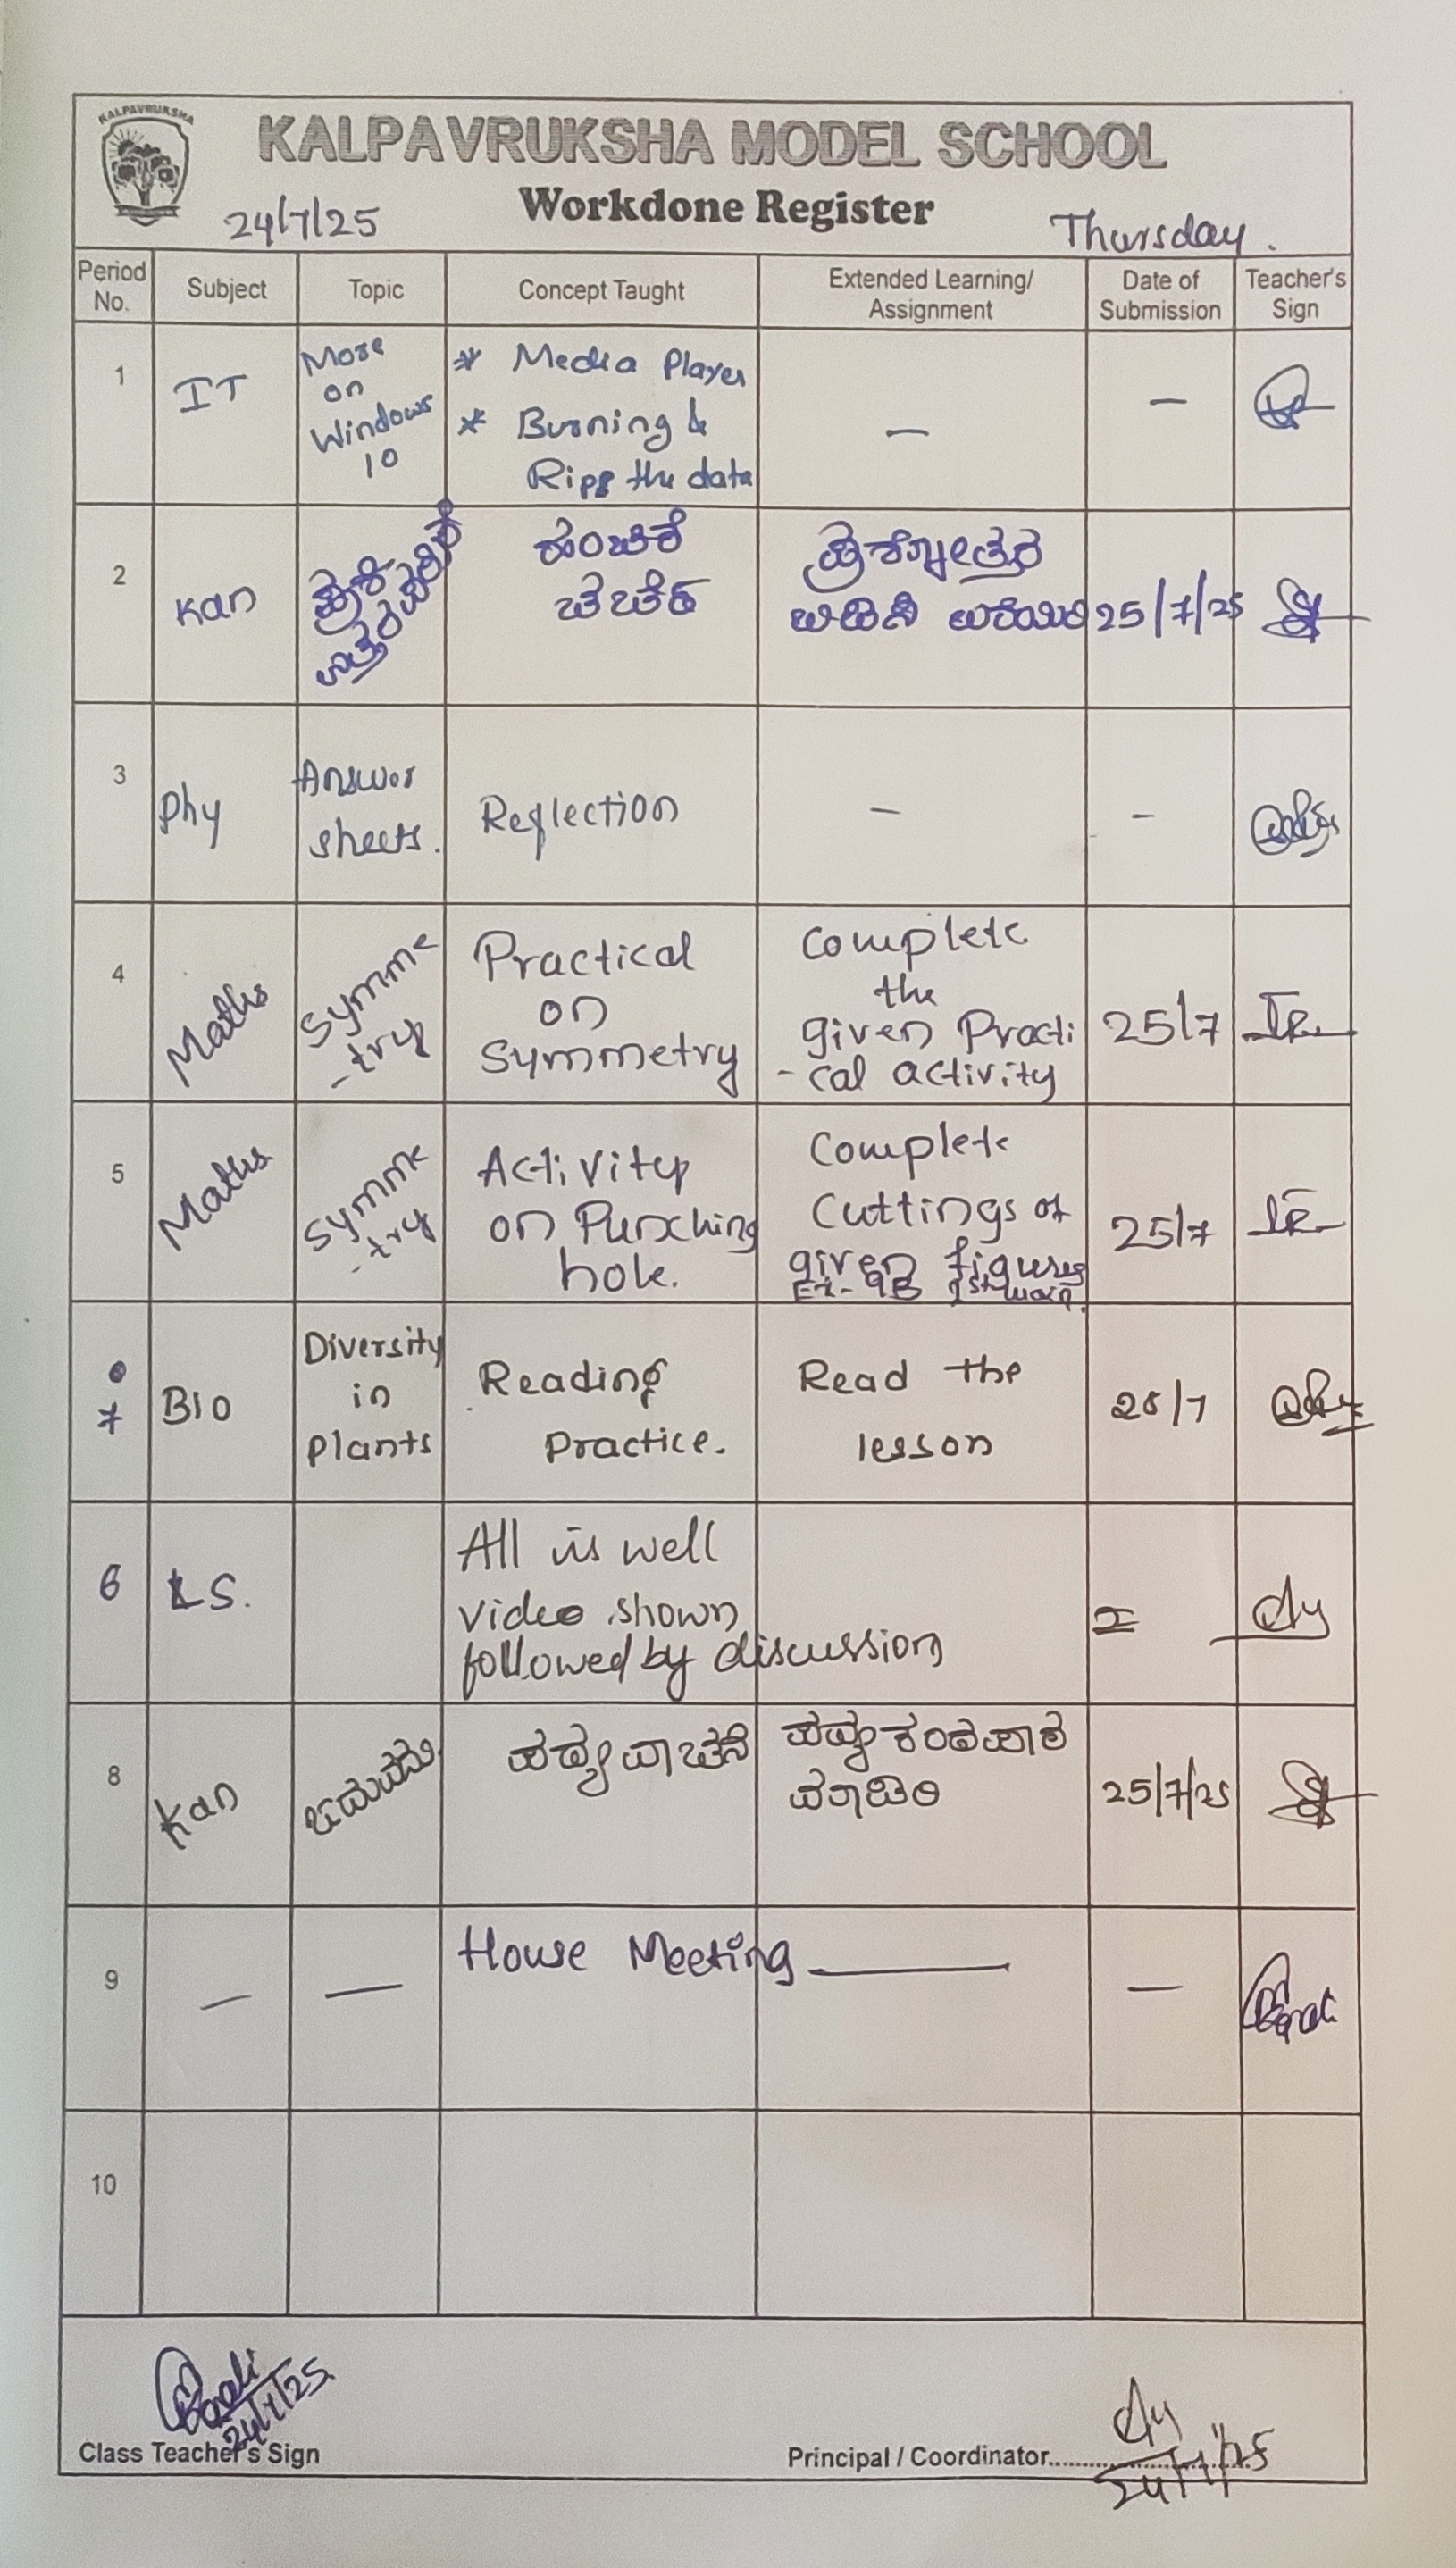 KALPAVRUKSHA
KALPAVRUKSHA MODEL SCHOOL
Workdone Register
24/7/25
Thursday.
Period No.
Subject
Topic
Concept Taught
Extended Learning/ Assignment
Date of Submission
Teacher's Sign
1
IT
More
on
Windows
10
* Media Player
* Burning &
Ripp the data
—
—
2
Kan
ಪ್ರಶ್ನೆ
ಹಂಚಿಕೆ
ಚರ್ಚೆ
ಪ್ರಶ್ನೋತ್ತರ
25/7/25
3
Phy
Answer
sheets.
Reflection
—
-
4
Maths
Symme
-try
Practical
on
Symmetry
Complete
the
given Practi
-cal activity
25/7
5
Maths
Symme
-try
Activity
on Punching
hole.
Complete
Cuttings of
given figures
Ex-9B
25/7
7
BIO
Diversity
in
plants
Reading
Practice.
Read the
lesson
6
LS.
All is well
video shown
followed by discussion
8
Kan
ಪದ್ಯ ವಾಚನ
ಪದ್ಯ ಕಂಠಪಾಠ
ಮಾಡಿರಿ
25/7/25
9
—
—
House Meeting —
—
10
24/7/25
Class Teacher's Sign
Principal / Coordinator
24/7/25